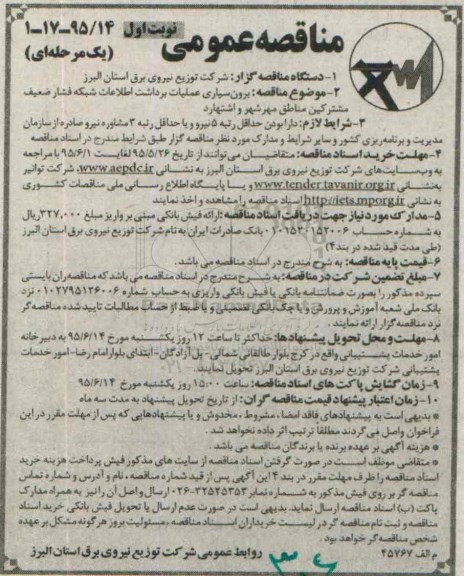 مناقصه عمومی
نوبت اول
۹۵/۱۴-۱۷-۱
(یک مرحله‌ای)
۱-دستگاه مناقصه گزار: شرکت توزیع نیروی برق استان البرز
۲-موضوع مناقصه: برون‌سپاری عملیات برداشت اطلاعات شبکه فشار ضعیف
مشترکین مناطق مهرشهر و اشتهارد
۳-شرایط لازم: دارا بودن حداقل رتبه ۵ نیرو و یا حداقل رتبه ۳ مشاوره نیرو صادره از سازمان
مدیریت و برنامه‌ریزی کشور و سایر شرایط و مدارک مورد نظر مناقصه گزار طبق شرایط مندرج در اسناد مناقصه
۴-مهلت خرید اسناد مناقصه: متقاضیان می‌توانند از تاریخ ۹۵/۵/۲۶ لغایت ۹۵/۶/۱ با مراجعه
به وب‌سایت‌های شرکت توزیع نیروی برق استان البرز به نشانی www.aepdc.ir، شرکت توانیر
به‌نشانی www.tender.tavanir.org.ir و یا پایگاه اطلاع رسانی ملی مناقصات کشوری
به نشانی http://iets.mporg.ir اسناد مناقصه را مشاهده و اخذ نمایند
۵-مدارک مورد نیاز جهت دریافت اسناد مناقصه: ارائه فیش بانکی مبنی بر واریز مبلغ ۳۲۷,۰۰۰ ریال
به شماره حساب ۰۱۰۲۵۳۰۱۵۲۰۰۶ بانک صادرات ایران به نام شرکت توزیع نیروی برق استان البرز
(طی مدت قید شده در بند ۴)
۶-قیمت پایه مناقصه: به شرح مندرج در اسناد مناقصه می باشد.
۷-مبلغ تضمین شرکت در مناقصه: به شرح مندرج در اسناد مناقصه می باشد که مناقصه‌گران بایستی
سپرده مذکور را بصورت ضمانتنامه بانکی یا فیش بانکی واریزی به حساب شماره ۰۱۰۲۷۹۵۱۲۶۰۰۶ نزد
بانک ملی شعبه آموزش و پرورش و یا چک بانکی تضمینی و یا ضبط از حساب مطالبات تایید شده مناقصه گر
نزد مناقصه گزار ارائه نمایند.
۸-مهلت و محل تحویل پیشنهادها: حداکثر تا ساعت ۱۲ روز یکشنبه مورخ ۹۵/۶/۱۴ به دبیرخانه
امور خدمات پشتیبانی واقع در کرج بلوار طالقانی شمالی- پل آزادگان- ابتدای بلوار امام رضا- امور خدمات
پشتیبانی شرکت توزیع نیروی برق استان البرز تحویل نمایند.
۹-زمان گشایش پاکت های اسناد مناقصه: ساعت ۱۵:۰۰ روز یکشنبه مورخ ۹۵/۶/۱۴
۱۰-زمان اعتبار پیشنهاد قیمت مناقصه گران: از تاریخ تحویل پیشنهاد به مدت سه ماه
* بدیهی است به پیشنهادهای فاقد امضا، مشروط، مخدوش و یا پیشنهادهایی که پس از مهلت مقرر در این
فراخوان واصل می‌گردند مطلقا ترتیب اثر داده نخواهد شد.
* هزینه آگهی بر عهده برنده یا برندگان مناقصه می باشد.
* متقاضی موظف است در صورت گرفتن اسناد مناقصه از سایت های مذکور فیش پرداخت هزینه خرید
اسناد مناقصه را ظرف مهلت مقرر در بند ۴ این آگهی پس از قید شماره مناقصه، نام و آدرس و شماره تماس
مناقصه گر بر روی فیش مذکور به شماره نمابر ۳۲۵۲۵۳۵۳-۰۲۶ ارسال و اصل آن را نیز به همراه مدارک
پاکت (ب) اسناد مناقصه ارسال نماید. بدیهی است در صورت عدم ارسال یا تحویل فیش بانکی خرید اسناد
مناقصه و ثبت نام مناقصه گر در لیست خریداران اسناد مناقصه، مسئولیت بروز هرگونه مشکل بر عهده
شخص مناقصه‌گر خواهد بود.
م الف ۴۵۷۶۷
روابط عمومی شرکت توزیع نیروی برق استان البرز